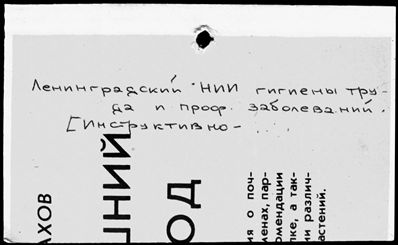 Ленинградский НИИ гигиены тру-
да и проф. заболеваний.
[Инструктивно- ...
АХОВ
ОД
ия о поч-
менах, пар-
омендации
ке, а так-
ии различ-
астений.